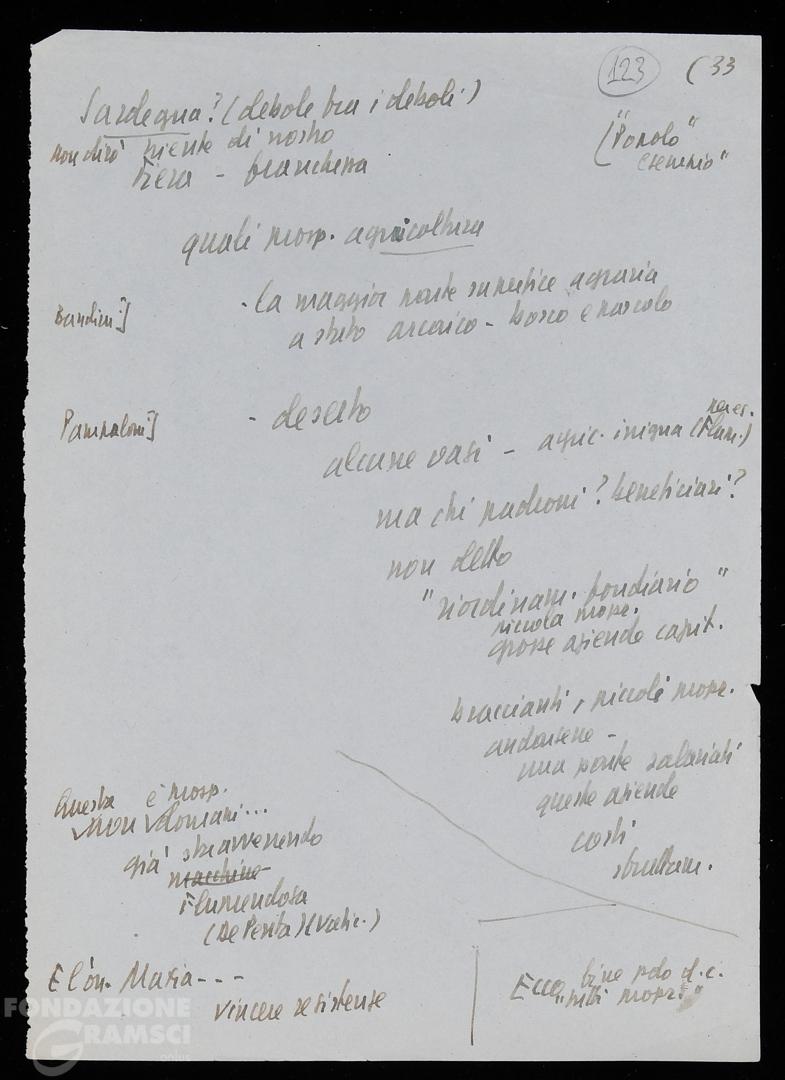 123 (33
Sardegna? (debole tra i deboli)
non dirò niente di nostro
Fiera - franchezza
("Popolo"
esempio"
quali prosp. agricoltura
Bandini:]
- La maggior parte superficie agraria
a stato arcaico - bosco e pascolo
Pampaloni:]
- deserto
alcune oasi - agric. irrigua (Flum.)
ma chi padroni? beneficiari?
non detto
"riordinam. fondiario"
piccola propr.
grosse aziende capit.
braccianti, piccoli propr.
andarsene -
una parte salariati
queste aziende
costi
sfruttam.
Questa è prosp.
non domani...
già sta avvenendo
macchine
Flumendosa
(De Perita) (Vatic.)
E l'on. Maxia - - -
vincere resistenze
Ecco fine solo d.c.
"tutti propr."
FONDAZIONE
GRAMSCI
onlus